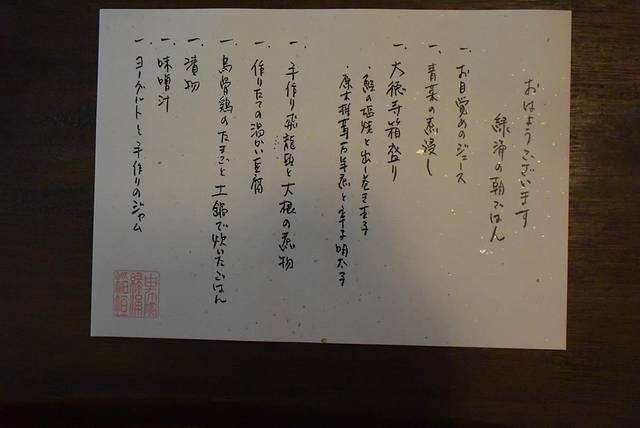 おはようございます
緑涌の朝ごはん
一、お目覚めのジュース
一、青菜の煮浸し
一、大徳寺箱盛り
・鮭の塩焼と出し巻き玉子
・原木椎茸万年煮と辛子明太子
一、手作り飛龍頭と大根の煮物
一、作りたての温かい豆腐
一、烏骨鶏のたまごと土鍋で炊いたごはん
一、漬物
一、味噌汁
一、ヨーグルトと手作りのジャム